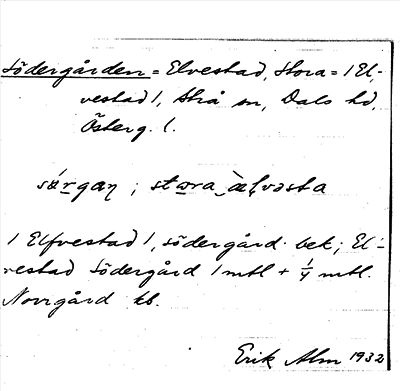 Södergården = Elvestad, Stora = / El-
vestad /, Strå sn, Dals hd,
Österg. l.
sǿrgaɳ ; stora ælvəsta
/ Elfvestad /, södergård bek; El-
vestad Södergård 1 mtl + 1/4 mtl.
Norrgård kb.
Erik Alm 1932